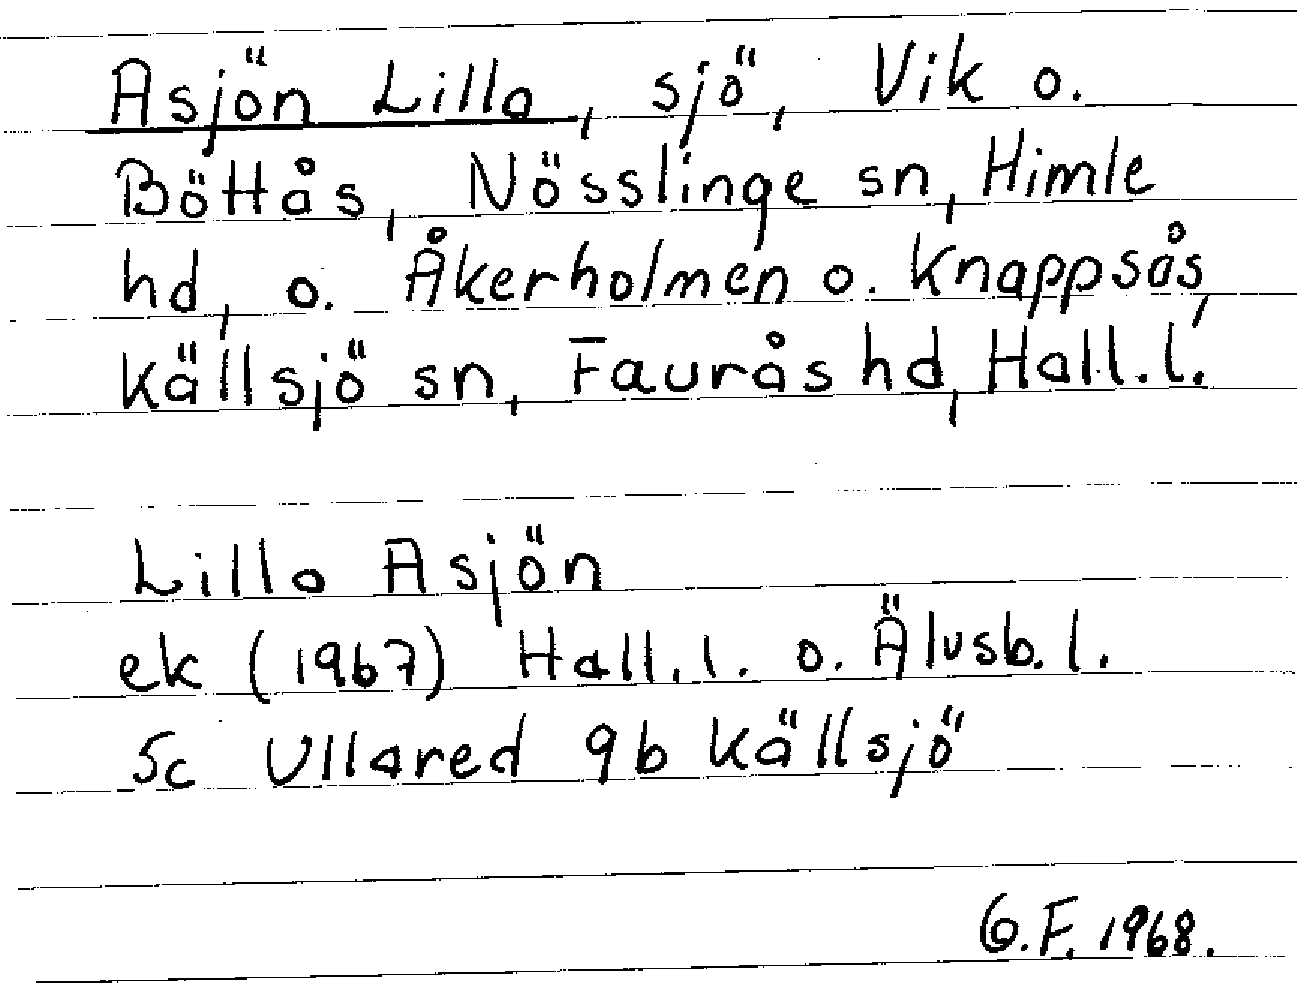 Asjön Lilla, sjö, Vik o.
Böttås, Nösslinge sn, Himle
hd, o. Åkerholmen o. Knappsås,
Källsjö sn, Faurås hd, Hall.l.
Lilla Asjön
ek (1967) Hall.l. o. Älvsb.l.
5c Ullared 9b Källsjö
G.F. 1968.